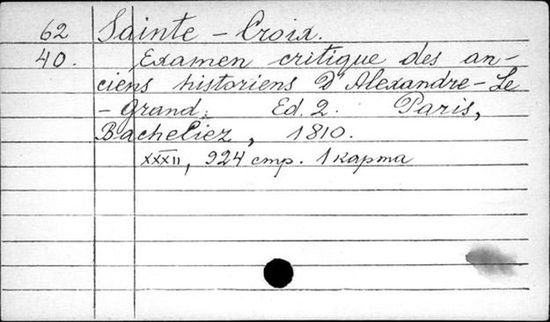 62 Sainte - Croix.
40. Examen critique des an-
ciens historiens D'Alexandre-Le
- Grand. Ed. 2. Paris,
Bacheliez, 1810.
XXXII, 924 стр. 1 карта